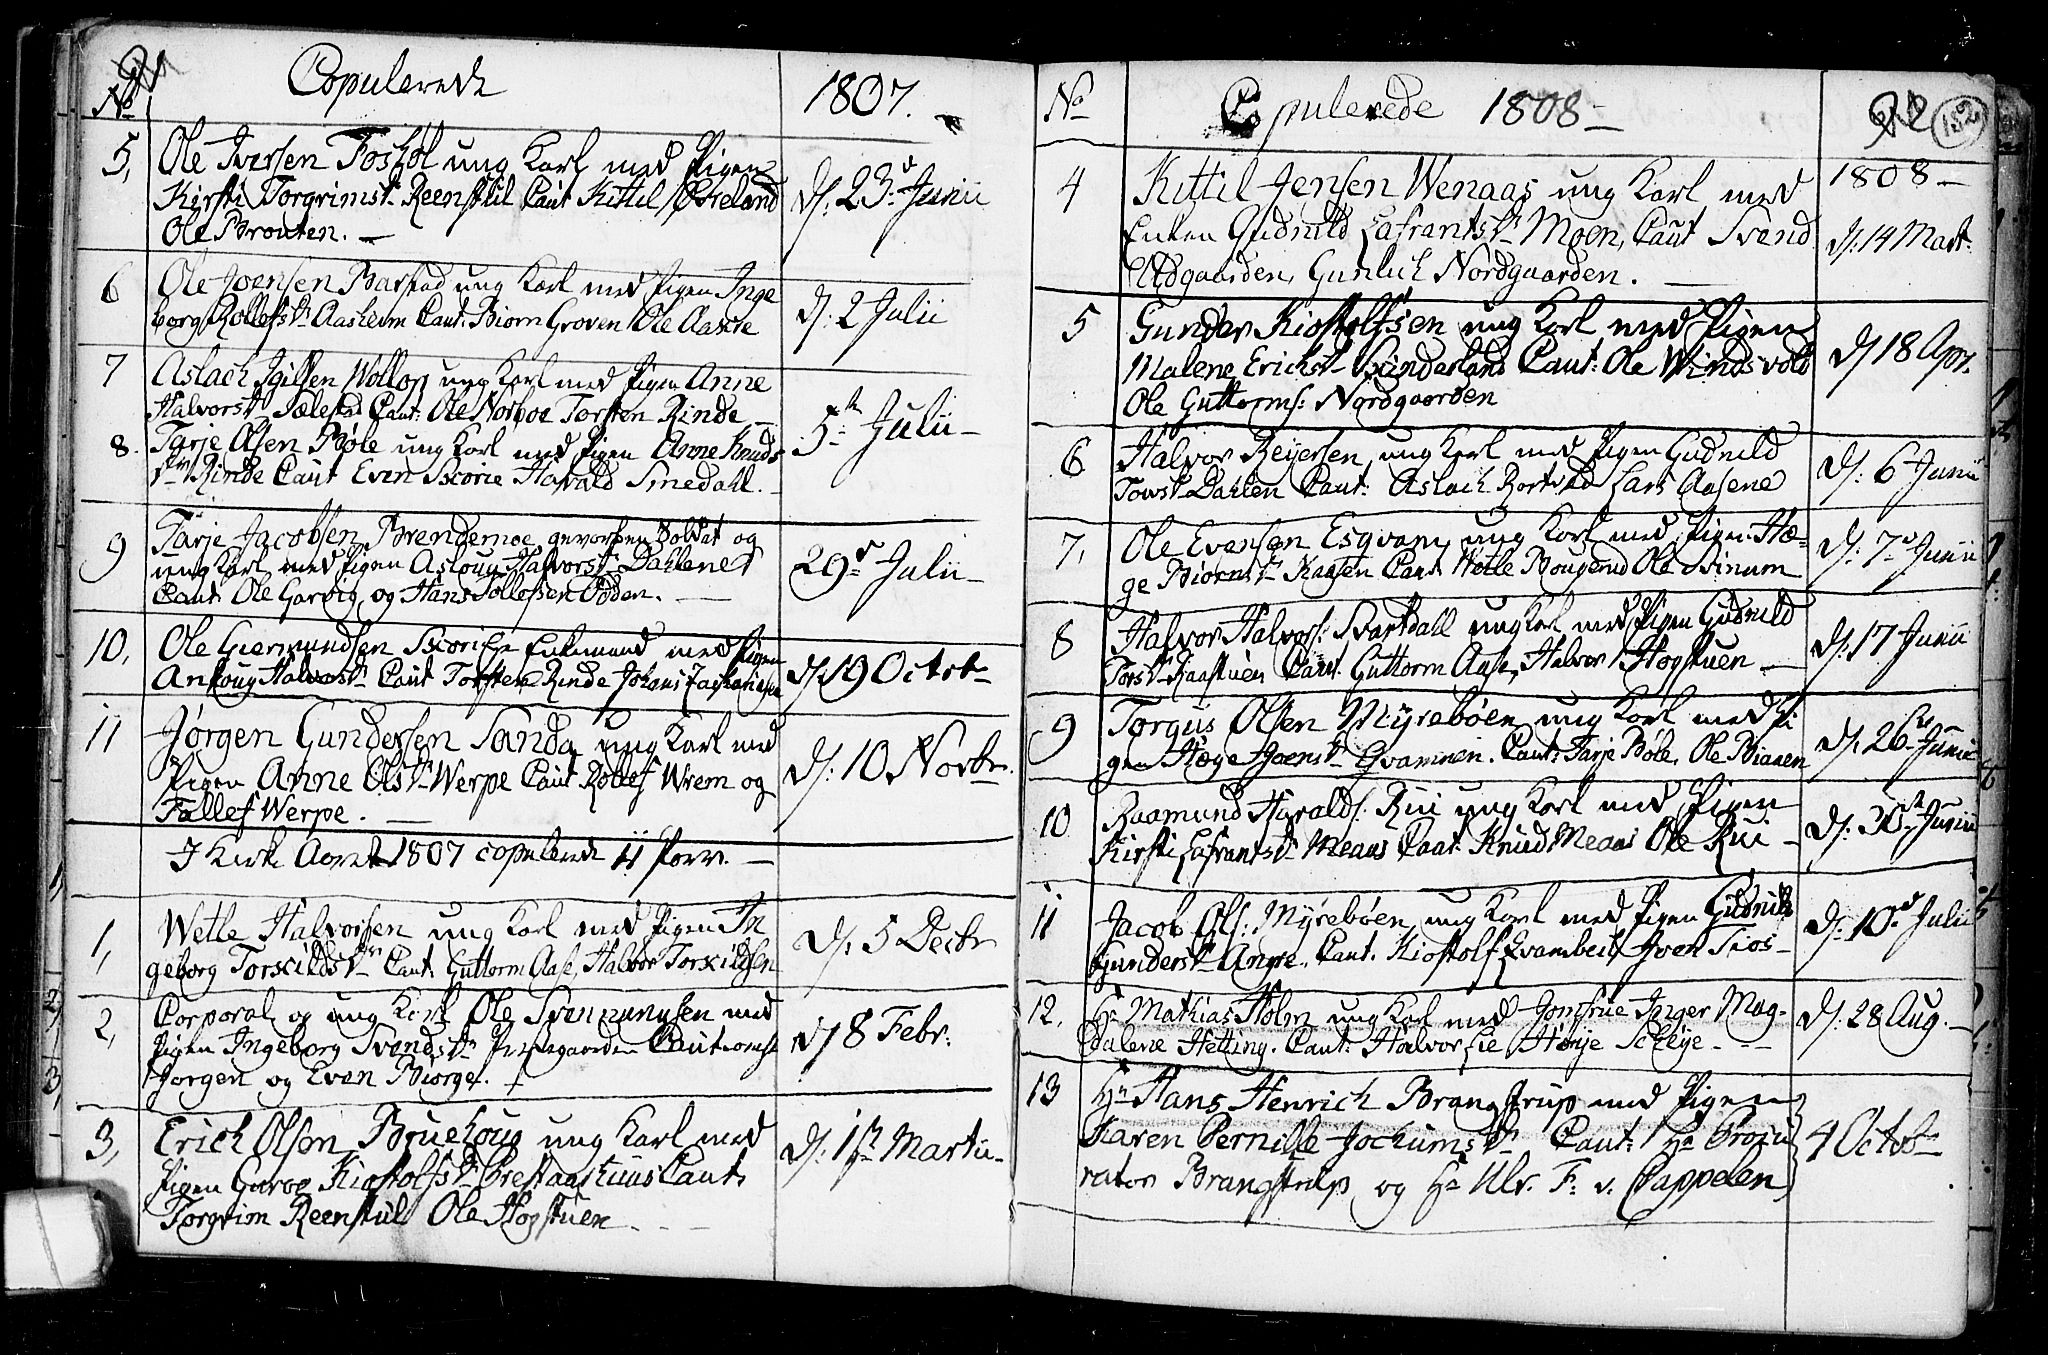 No Copulerede 1807.
5, Ole Iversen Foshol ung Karl med Pigen
Kirsti Torgrimsd. Reenstul Caut Kittil
Ole Brouten. d: 23d Junii
6 Ole Joensen Barstad ung Karl med Pigen Inge
borg Rollefsdr Aasheim Caut: Biorn Groven Ole Aasne d: 2 Julii
7 Aslach Igilsen Wollon ung Karl med Pigen Anne
Halvorsdr Caut: Ole Norboe Torsten Rinde
8. Tarje Olsen Bøle ung Karl med Pigen Anne Knuds
dr Rinde Caut Even Skorie Havald Smedahl. 5te Julii
9 Tarje Jacobsen Brendemoe gevorben Soldat og
ung Karl med Pigen Asloug Halvorsdr Dahlene
Caut: Ole Garvig og Hans Tollefsen Odden. 29d Julii
10, Ole Giermundsen Skorie Enkemand med Pigen
Anloug Halvorsdr Caut Torsten Rinde Johans Zachariasen d: 19 Octobr
11 Jørgen Gundersen Sanda ung Karl med
Pigen Anne Olsdr Werpe Caut Rollef Wrem og
Tollef Werpe. d: 10 Novbr.
I Kirke Aaret 1807 copulerede 11 Parr.
1, Wetle Halvorsen ung Karl med Pigen In
geborg Torkildsdr Caut: Guttorm Aase, Halvor Torkildsen d: 5 Decbr
2, Corporal og ung Karl Ole Svennungsen med
Pigen Ingeborg Svendsdr Præstegaarden Caut
Jorgen og Even Biorge. d 8 Febr:
3, Erich Olsen Bruehoug ung Karl med
Pigen Guroe Kiostolfsdr Caut
Torgrim Reenstul Ole Hogstuen d: 1ste Martii
No Copulerede 1808 152
4 Kittil Jensen Wenaas ung Karl med 1808
Enken Gudnild Lafrantsdr Moen, Caut Svend d: 14 Mart:
Uldgaarden, Gunlich Nordgaarden.
5 Gunder Kiostolfsen ung Karl med Pigen
Malene Ericksd. Caut: Ole Windsvold d 18 Apr.
Ole Guttorms: Nordgaarden
6 Halvor Reyersen ung Karl med Pigen Gudnild
Towsdr Dahlen Caut: Aslach Lars Aasene d: 6 Junii
7, Ole Evensen Esqvam ung Karl med Pigen Hæ=
ge Biornsdr Kaasen Caut Wetle Bougerud Ole Svinum d: 7d Junii
8 Halvor Halvors: Svartdall ung Karl med Pigen Gudnild
Torsdr Raastuen Caut: Guttorm Aase, Halvor Hogstuen d: 17 Junii
9 Torgus Olsen Myrebøen ung Karl med Pi
gen Hæge Joensdr Gvammen. Caut: Tarje Bøle, Ole Bianen d: 26de Junii
10 Raamund Haralds: Rui ung Karl med Pigen
Kirsti Lafrantsdr Meaas Caut: Knud Meaas Ole Rui d: 30te Junii
11 Jacob Ols: Myrebøen ung Karl med Pigen Gudnild
Gundersdr Caut. Kiostolf Iver d: 10d Julii
12. Hr Mathias Holm ung Karl med Jomfrue Inger Mag-
dalene Hetting. Caut: Halvor Lie Herje d: 28 Aug.
13 Hr Hans Henrich Brangstrup med Pigen
Karen Pernille Jochumsdr Caut: Hr Procu
rator Brangstrup og Hr Ulr. F: v. Cappelen 4 Octobr